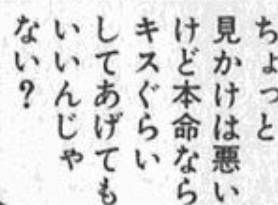 ちょっと
見かけは悪い
けど本命なら
キスぐらい
してあげても
いいんじゃ
ない？